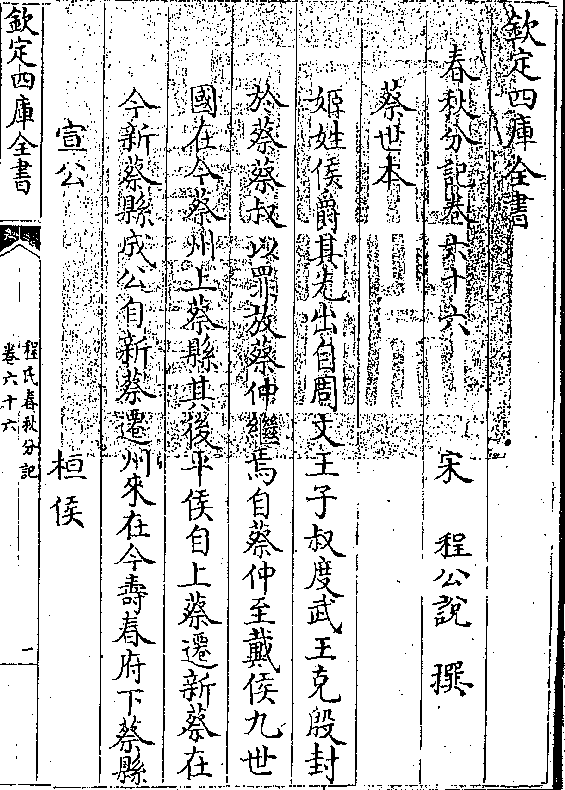 欽定四庫全書
春秋分記卷六十六
宋 程公說 撰
蔡世本
姬姓侯爵其先出自周文王子叔度武王克殷封
於蔡蔡叔以罪放蔡仲繼焉自蔡仲至戴侯九世
國在今蔡州上蔡縣其後平侯自上蔡遷新蔡在
今新蔡縣成公自新蔡遷州來在今壽春府下蔡縣
宣公 桓侯
欽定四庫全書
程氏春秋分記
卷六十六
一